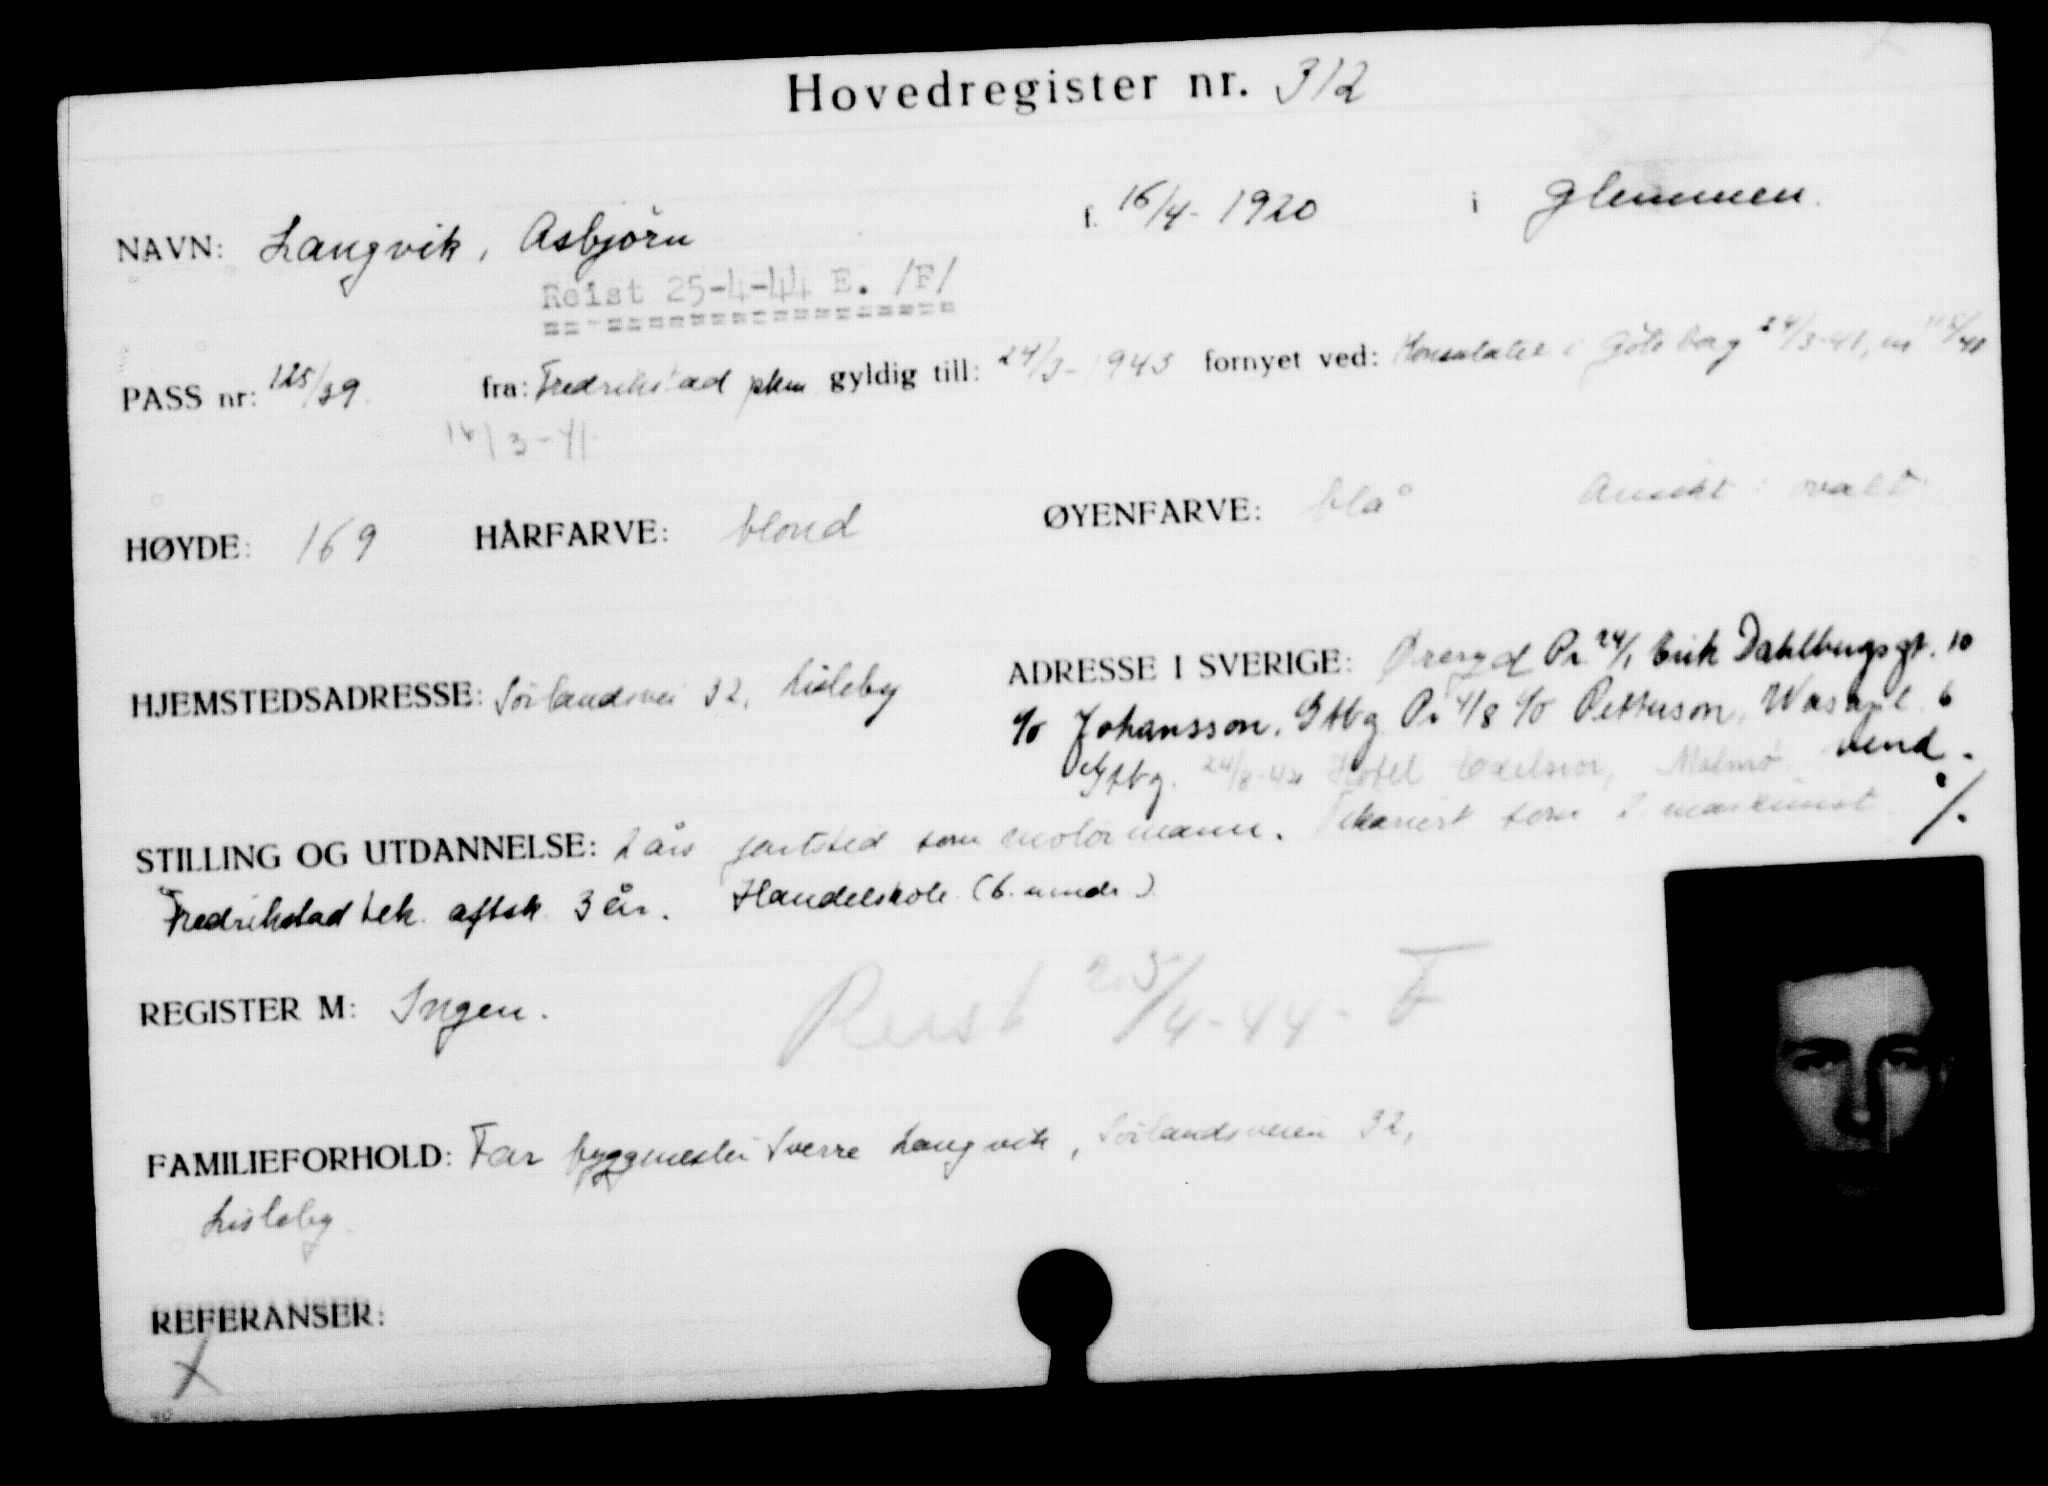 Hovedregister nr. 312
NAVN: Langvik, Asbjörn f. 16/4-1920 i Glemmen.
Reist 25-4-44 E. /F/
PASS nr: 125/39 fra: Fredrikstad pkm gyldig till: 24/3-1943 fornyet ved: Konsulatet i Göteborg 24/3-41, nr
/3-41
HØYDE: 169 HÅRFARVE: blond ØYENFARVE: blå Ansikt: ovalt
HJEMSTEDSADRESSE: Sörlandsvei 32, Lisleby ADRESSE I SVERIGE: Öreryd Pr. 24/1 Erik Dahlbergsgt. 10
c/o Johansson, Gtbg Pr 4/8 c/o Petterson, Wasapl. 6
Gtbg. 24/8-42 Hotel Excelsior, Malmö vend.
STILLING OG UTDANNELSE: 2 års fartstid som motormann. Vikariert som 2. maskinist ./.
Fredrikstad tek. aftsk. 3 år. Handelskole (6. mndr.)
REGISTER M: Ingen. Reist 25/4-44- F
FAMILIEFORHOLD: Far byggmester Sverre Langvik, Sörlandsveien 32,
Lisleby.
REFERANSER:
X